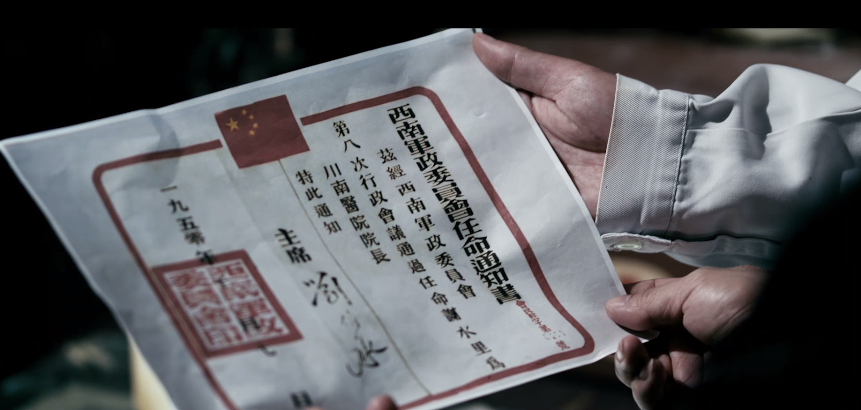 西南軍政委員會任命通知書
茲經西南軍政委員會
第八次行政會議通過任命謝水里為
川南醫院院長
特此通知
主席
一九五零年
月七
西南軍政
委員會印